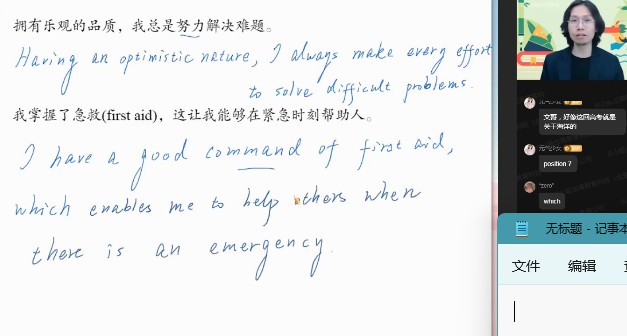 拥有乐观的品质，我总是努力解决难题。
Having an optimistic nature, I always make every effort
to solve difficult problems.
我掌握了急救(first aid)，这让我能够在紧急时刻帮助人。
I have a good command of first aid,
which enables me to help others when
there is an emergency.
关于海洋的
position？
"zero"
which
无标题 - 记事本
文件
编辑